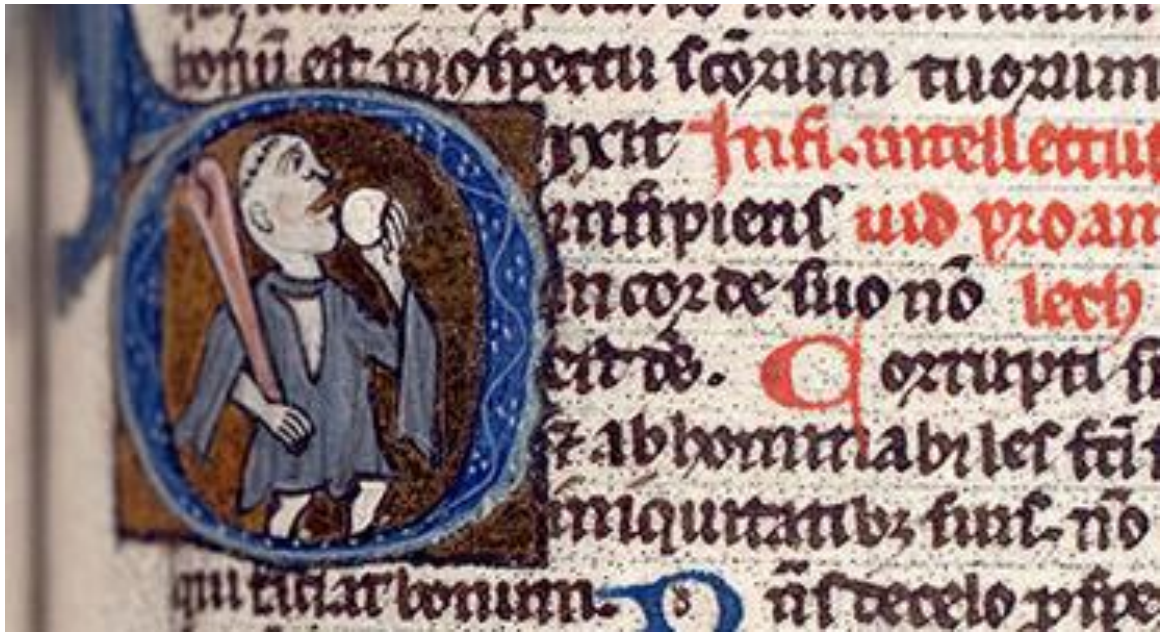 bonū est in ɔspectu sc̄oꝝum tuorum
Dixit In fi. intellectus
insipiens dauid pro am
in corde suo nō lech
est de᷒. Corrupti s
sꝫ abhominabiles fc̄i
iniquitatibꝫ suis. nō
qui faciat bonum. D n̄s de celo ꝓspe